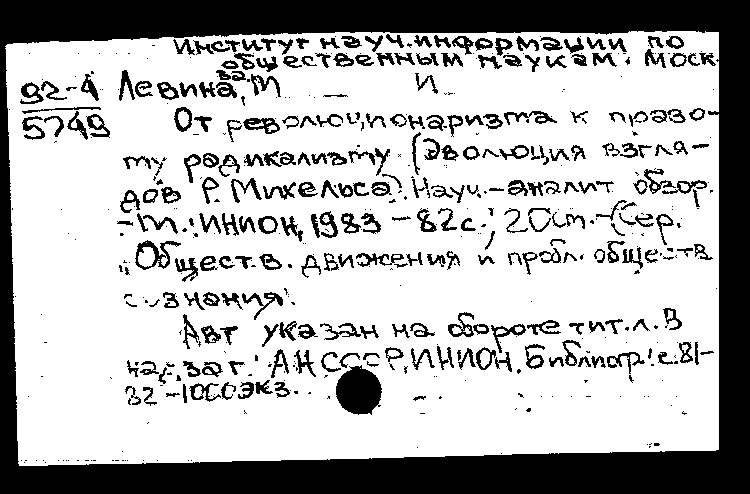 Институт науч. информации по
общественным наукам. Моск.
92-4 Левина, М И
5749
От революционаризма к право-
му радикализму (Эволюция взгля-
дов Р. Михельса). Науч.-аналит обзор.
- М.: ИНИОН, 1983 - 82 с.; 20 см. - (Сер.
"Обществ. движения и пробл. обществ
сознания".
Авт указан на обороте тит. л. В
надзаг.: АН СССР, ИНИОН. Библиогр.: с. 81-
82 - 1000 экз.